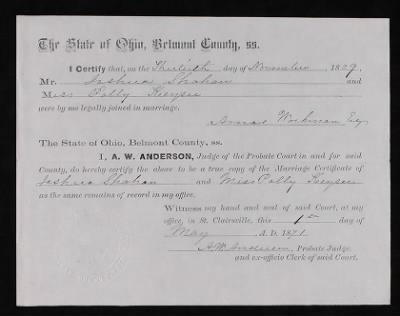 The State of Ohio, Belmont County, ss.
I Certify that, on the Thirtieth day of November 1829,
Mr. Joshua Shahan and
Miss Polly
were by me legally joined in marriage.
Workman Esq
The State of Ohio, Belmont County, ss.
I, A. W. ANDERSON, Judge of the Probate Court in and for said
County, do hereby certify the above to be a true copy of the Marriage Certificate of
Joshua Shahan and Miss Polly
as the same remains of record in my office.
Witness my hand and seal of said Court, at
my office, in St. Clairsville, this 1st day of
May A. D. 1871.
A.W. Anderson, Probate Judge
and ex-officio Clerk of said Court.